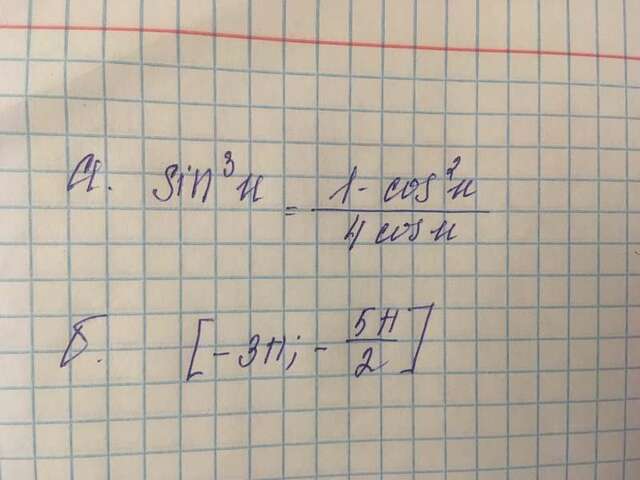 а. sin³x = (1 - cos²x)/(4 cos x)
б. [-3π; -5π/2]